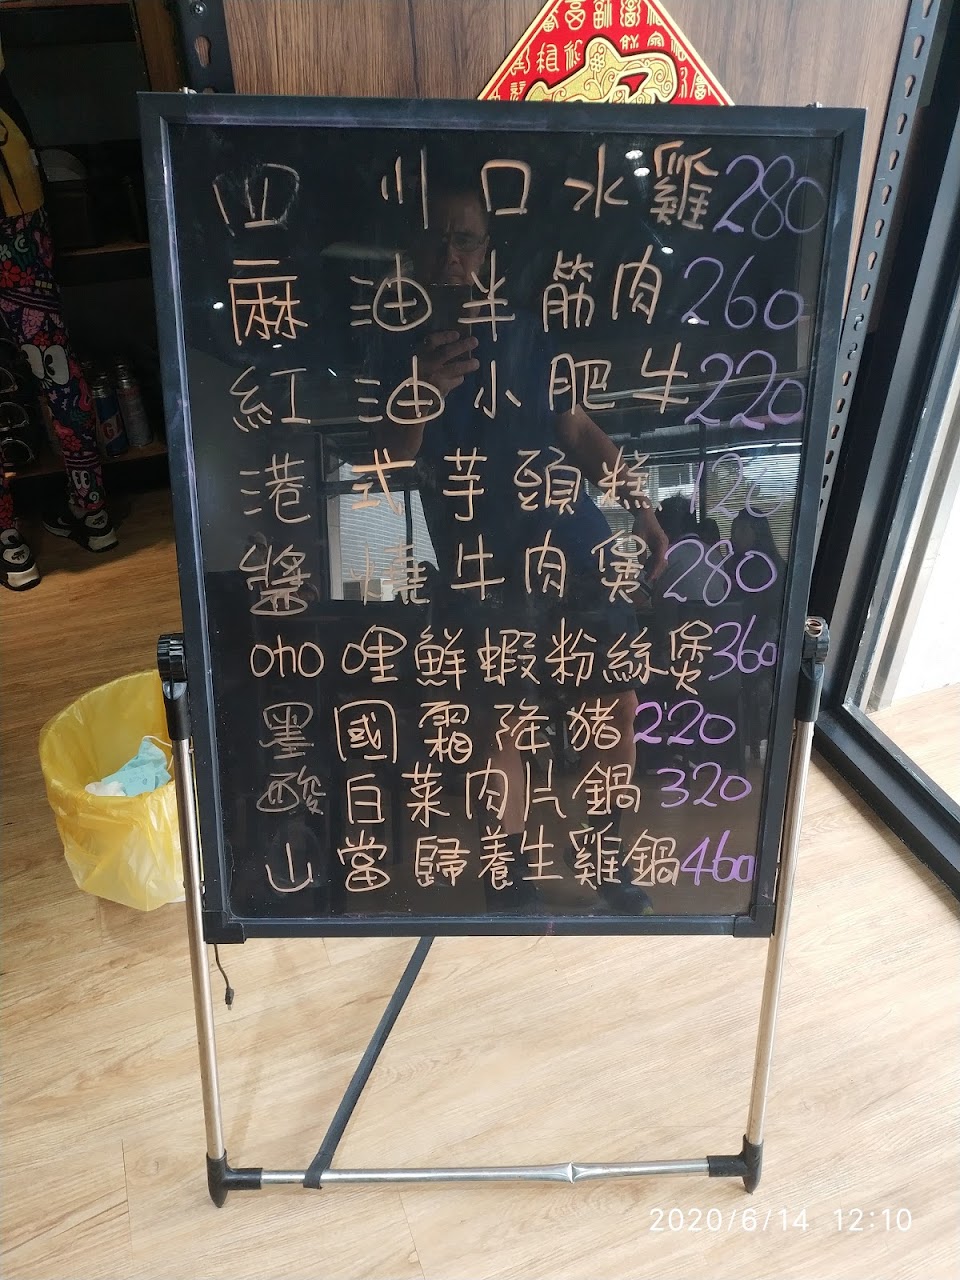 四川口水雞280
麻油半筋肉260
紅油小肥牛220
港式芋頭糕120
醬燒牛肉煲280
咖哩鮮蝦粉絲煲360
墨國霜降猪220
酸白菜肉片鍋320
山當歸養生雞鍋460
2020/6/14 12:10